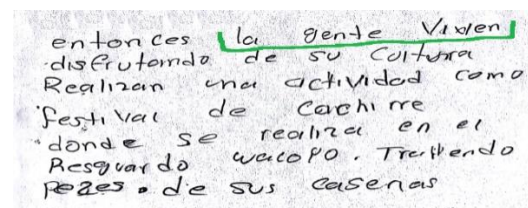 entonces la gente Vixien
disfrutamdo de su Coltura
Realizan una actividad como
festival de Cachirre
donde se realiza en el
Resguardo wacoyo. Trayendo
pezes. de sus casenas